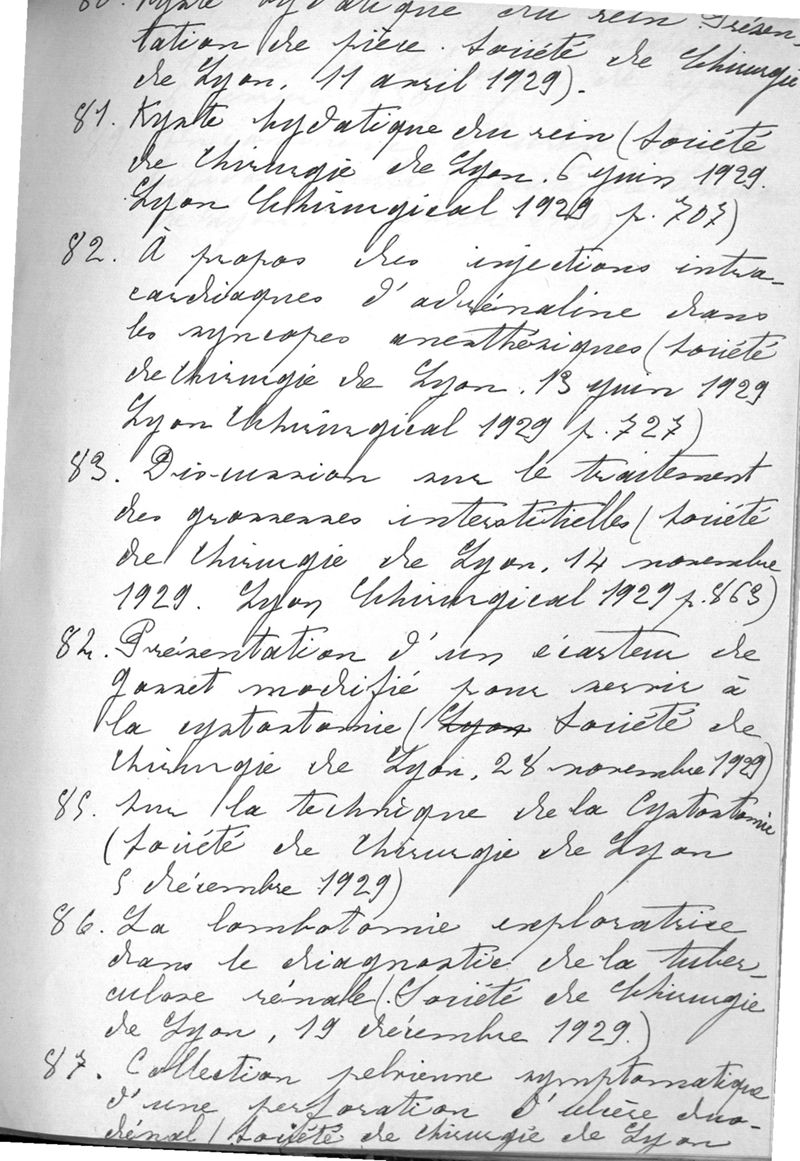 80. Kyste hydatique du rein. Présen-
tation de pièce. Société de Chirurgie
de Lyon, 11 avril 1929).
81. Kyste hydatique du rein (Société
de Chirurgie de Lyon. 6 juin 1929.
Lyon Chirurgical 1929 p. 707)
82. À propos des injections intra-
cardiaques d'adrénaline dans
les syncopes anesthésiques (Société
de Chirurgie de Lyon. 13 juin 1929
Lyon Chirurgical 1929 p. 727)
83. Discussion sur le traitement
des grossesses interstitielles (Société
de Chirurgie de Lyon, 14 novembre
1929. Lyon Chirurgical 1929 p. 863)
84. Présentation d'un écarteur de
Gosset modifié pour servir à
la cystostomie (Lyon Société de
Chirurgie de Lyon, 28 novembre 1929)
85. Sur la technique de la Cystostomie
(Société de Chirurgie de Lyon
5 décembre 1929)
86. La lombotomie exploratrice
dans le diagnostic de la tuber-
culose rénale (Société de Chirurgie
de Lyon, 19 décembre 1929.)
87. Collection pelvienne symptomatique
d'une perforation d'ulcère duo-
dénal (Société de Chirurgie de Lyon